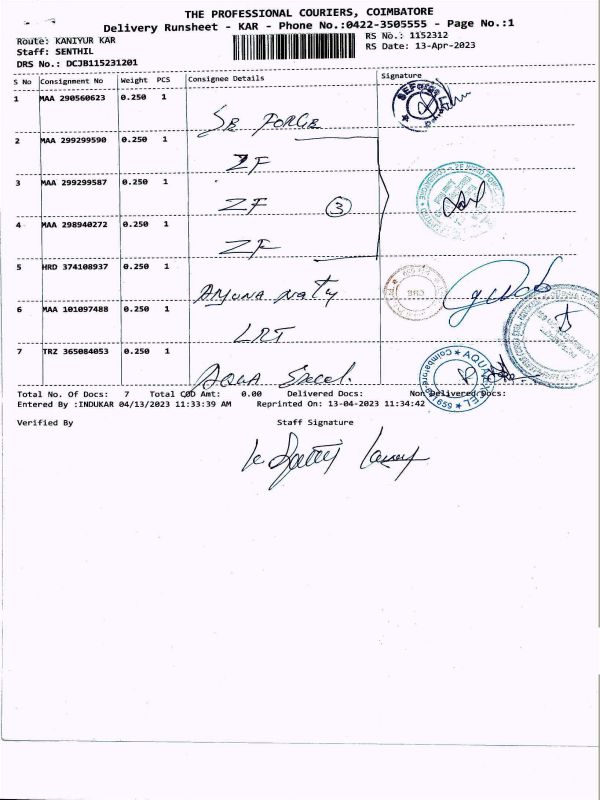 THE PROFESSIONAL COURIERS, COIMBATORE
Delivery Runsheet - KAR - Phone No.:0422-3505555 - Page No.:1
Route: KANIYUR KAR
RS No.: 1152312
Staff: SENTHIL
RS Date: 13-Apr-2023
DRS No.: DCJB115231201
S No Consignment No Weight PCS Consignee Details Signature
1 MAA 290560623 0.250 1
SE FORGE
2 MAA 299299590 0.250 1
ZF
3 MAA 299299587 0.250 1
ZF 3
4 MAA 298940272 0.250 1
ZF
5 HRD 374108937 0.250 1
6 MAA 101097488 0.250 1
LRT
7 TRZ 365084053 0.250 1
AQUA Excel.
AQUA EXCEL Coimbatore
Total No. Of Docs: 7 Total COD Amt: 0.00 Delivered Docs: Non Delivered Docs:
Entered By :INDUKAR 04/13/2023 11:33:39 AM Reprinted On: 13-04-2023 11:34:42
Verified By Staff Signature